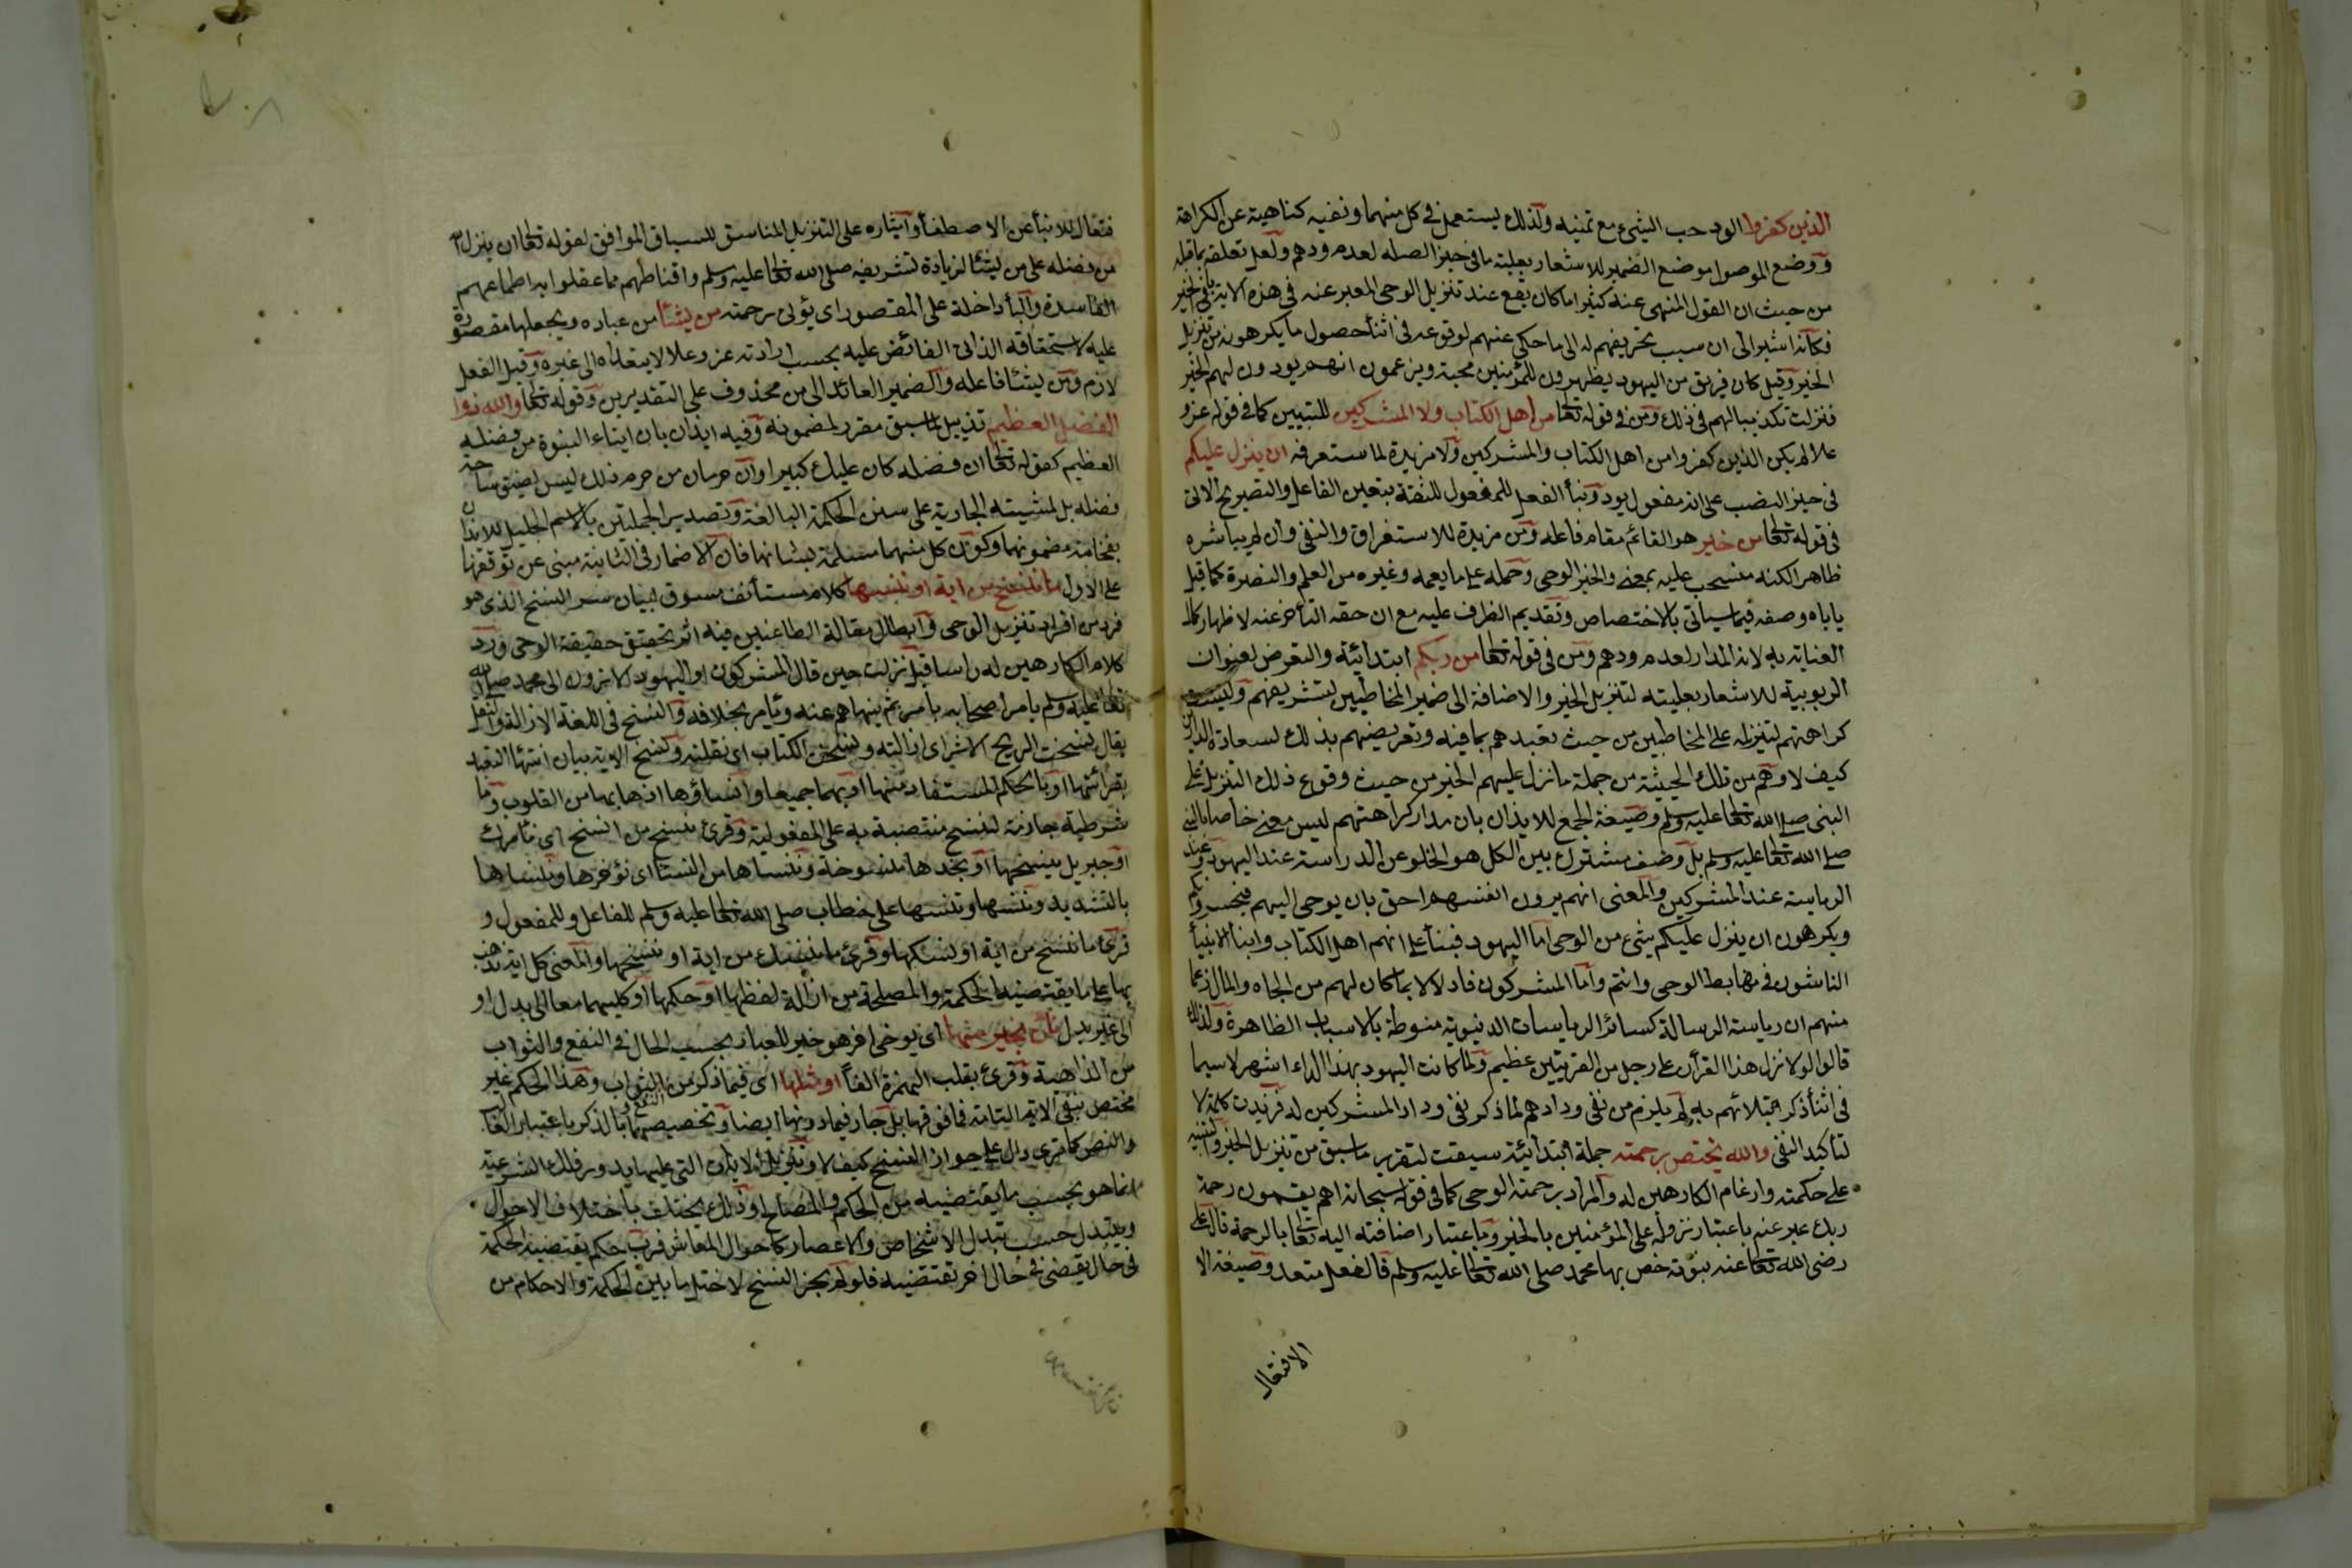 الذين كفروا الود حب الشيء مع تمنيه ولذلك يستعمل في كل منهما ونفيه كناية عن الكراهة
ووضع الموصول موضع الضمير للاشعار بعلية ما في حيز الصلة لعدم ودهم ولعل تعلقه بما قبله
من حيث ان القول المنهى عنه كثيرا ما كان يقع عند تنزيل الوحى المعبر عنه في هذه الاية بالخير
فكانه اشير الى ان سبب تحريفهم له الى ما حكى عنهم لوقوعه في اثناء حصول ما يكرهونه من تنزيل
الخير وقيل كان فريق من اليهود يظهرون للمؤمنين محبة ويزعمون انهم يودون لهم الخير
فنزلت تكذيبا لهم في ذلك ومن في قوله تعالى من اهل الكتاب ولا المشركين للتبيين كما في قوله عز و
علا لم يكن الذين كفروا من اهل الكتاب والمشركين ولا مزيدة لما ستعرفه ان ينزل عليكم
في حيز النصب على انه مفعول يود وبناء الفعل للمفعول للثقة بتعين الفاعل والتصريح الاتى
في قوله تعالى من خير هو القائم مقام فاعله ومن مزيدة للاستغراق والنفى وان لم يباشره
ظاهرا لكنه منسحب عليه بمعنى والخير الوحى وحمله على ما يعمه وغيره من العلم والنصرة كما قيل
ياباه وصفه فيما سياتى بالاختصاص وتقديم الظرف عليه مع ان حقه التأخر عنه لاظهار كمال
العناية به لانه المدار لعدم ودهم ومن في قوله تعالى من ربكم ابتدائية والتعرض لعنوان
الربوبية للاشعار بعليته لتنزيل الخير والاضافة الى ضمير المخاطبين لتشريفهم وليست
كراهتهم لتنزيله على المخاطبين من حيث تعبدهم بما فيه وتعريضهم بذلك لسعادة الدارين
كيف لا وهم من تلك الحيثية من جملة ما نزل عليهم الخير من حيث وقوع ذلك التنزيل على
النبى صلى الله تعالى عليه وسلم وصيغة الجمع للايذان بان مدار كراهتهم ليس معنى خاصا بالنبى
صلى الله تعالى عليه وسلم بل وصف مشترك بين الكل هو الخلو عن الدراسة عند اليهود وعن
الرياسة عند المشركين والمعنى انهم يرون انفسهم احق بان يوحى اليهم فيحسدونكم
ويكرهون ان ينزل عليكم شيء من الوحى اما اليهود فبناء على انهم اهل الكتاب وابناء الانبياء
الناشئون في مهابط الوحى وانتم واما المشركون فادلالا بما كان لهم من الجاه والمال زعما
منهم ان رياسة الرسالة كسائر الرياسات الدنيوية منوطة بالاسباب الظاهرة ولذلك
قالوا لولا نزل هذا القرأن على رجل من القريتين عظيم ولما كانت اليهود بهذا الداء اشهر لاسيما
في اثناء ذكر ابتلائهم به لم يلزم من نفى ودادهم لما ذكر نفى وداد المشركين له فزيدت كلمة لا
لتأكيد النفى والله يختص برحمته جملة ابتدائية سيقت لتقرير ما سبق من تنزيل الخير والتنبيه
على حكمته وارغام الكارهين له والمراد برحمته الوحى كما في قوله سبحانه اهم يقسمون رحمة
ربك عبر عنه باعتبار نزوله على المؤمنين بالخير وباعتبار اضافته اليه تعالى بالرحمة قال على
رضى الله تعالى عنه بنبوته خص بها محمد صلى الله تعالى عليه وسلم فالفعل متعد وصيغة الا
الافتعال
فتعال للانباء عن الاصطفاء وايثاره على التنزيل المناسق للسياق الموافق لقوله تعالى ان ينزل الله
من فضله على من يشاء لزيادة تشريفه صلى الله تعالى عليه وسلم واقناطهم مما عقلوا به اطماعهم
الفاسدة والباء داخلة على المقصور اى يؤتى رحمته من يشاء من عباده ويجعلها مقصورة
عليه لاستحقاقه الذاتى الفائض عليه بحسب ارادته عز وعلا لا يتعداه الى غيره وقيل الفعل
لازم ومن يشاء فاعله والضمير العائد الى من محذوف على التقديرين وقوله تعالى والله ذوا
الفضل العظيم تذييل لما سبق مقرر لمضمونه وفيه ايذان بان ايتاء النبوة من فضله
العظيم كقوله تعالى ان فضله كان عليك كبيرا وان حرمان من حرم ذلك ليس لضيق ساحة
فضله بل لمشيته الجارية على سنن الحكمة البالغة وتصدير الجملتين بالاسم الجليل للايذان
بفخامة مضمونهما وكون كل منهما مستقلة بشانها فان الاضمار في الثانية مبنى عن توقفها
على الاول ما ننسخ من اية او ننسها كلام مستأنف مسوق لبيان سر النسخ الذى هو
فرد من افراد تنزيل الوحى وابطال مقالة الطاعنين فيه اثر تحقيق حقيقة الوحى ورد
كلام الكارهين له راسا قيل نزلت حين قال المشركون او اليهود الا ترون الى محمد صلى الله
تعالى عليه وسلم يامر اصحابه بامر ثم ينهاهم عنه ويأمر بخلافه والنسخ في اللغة الازالة والنقل
يقال نسخت الريح الاثر اى ازالته ونسخت الكتاب اى نقلته ونسخ الاية بيان انتهاء التعبد
بقرائتها او بالحكم المستفاد منها او بهما جميعا وانساؤها اذهابها من القلوب وما
شرطية جازمة لننسخ منتصبة به على المفعولية وقرئ ننسخ من انسخ اى نأمرك
او جبريل بنسخها او نجدها منسوخة وننسأها من النسأ اى نؤخرها وننسها
بالتشديد وتنسها وتنسها على خطاب صلى الله تعالى عليه وسلم للفاعل وللمفعول و
قرئ ما ننسخ من اية او ننسكها وقرئ ما ننسك من اية او ننسخها والمعنى كل اية نذهب
بها على ما يقتضيه الحكمة والمصلحة من ازالة لفظها او حكمها او كليهما معا الى بدل او
الى غير بدل نأت بخير منها اى نوحى اخر هو خير للعباد بحسب الحال في النفع والثواب
من الذاهبة وقرئ بقلب الهمزة الفا او مثلها اى فيما ذكر من النفع والثواب وهذا الحكم غير
مختص بنفى الاية التامة فما فوقها بل جار فيما دونها ايضا وتخصيصها بالذكر باعتبار الغالب
والنص كما ترى دال على جواز النسخ كيف لا وتنزيل الايات التى عليها يدور فلك الشرعية
انما هو بحسب ما يقتضيه من الحكم والمصالح وذلك يختلف باختلاف الاحوال
ويتبدل حسب تبدل الاشخاص والاعصار كاحوال المعاش فرب حكم يقتضيه الحكمة
في حال يقضى في حال اخر تقتضيه فلو لم يجز النسخ لاختل ما بين الحكمة والاحكام من